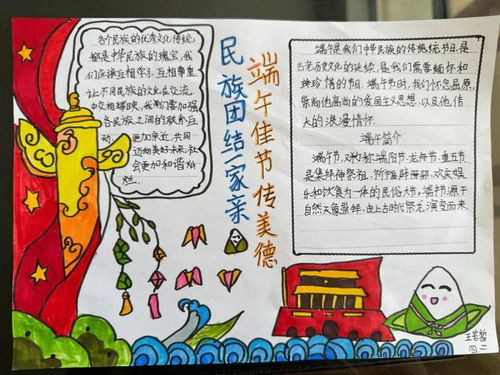 各个民族的优秀文化传统
都是中华民族的瑰宝,我
们应该互相学习,互相尊重
让不同民族的文化在交流
中交相辉映,我们要加强
各民族之间的联系互
动,更加亲近,共同
迈向美好未来,社
会更加和谐灿
烂。
民族团结一家亲
端午佳节传美德
端午是我们中华民族的传统节日,是
古老历史文化的延续,是我们需要缅怀和
珍惜的节日。端午节时,我们怀念屈原,
崇尚他高尚的爱国主义思想,以及他伟
大的浪漫情怀。
端午简介
端午节,又称端阳节、龙舟节、重五节
是集拜神祭祖、祈福辟邪、欢庆娱
乐和饮食为一体的民俗大节。端午节源于
自然天象崇拜,由上古时代祭龙演变而来。
四二